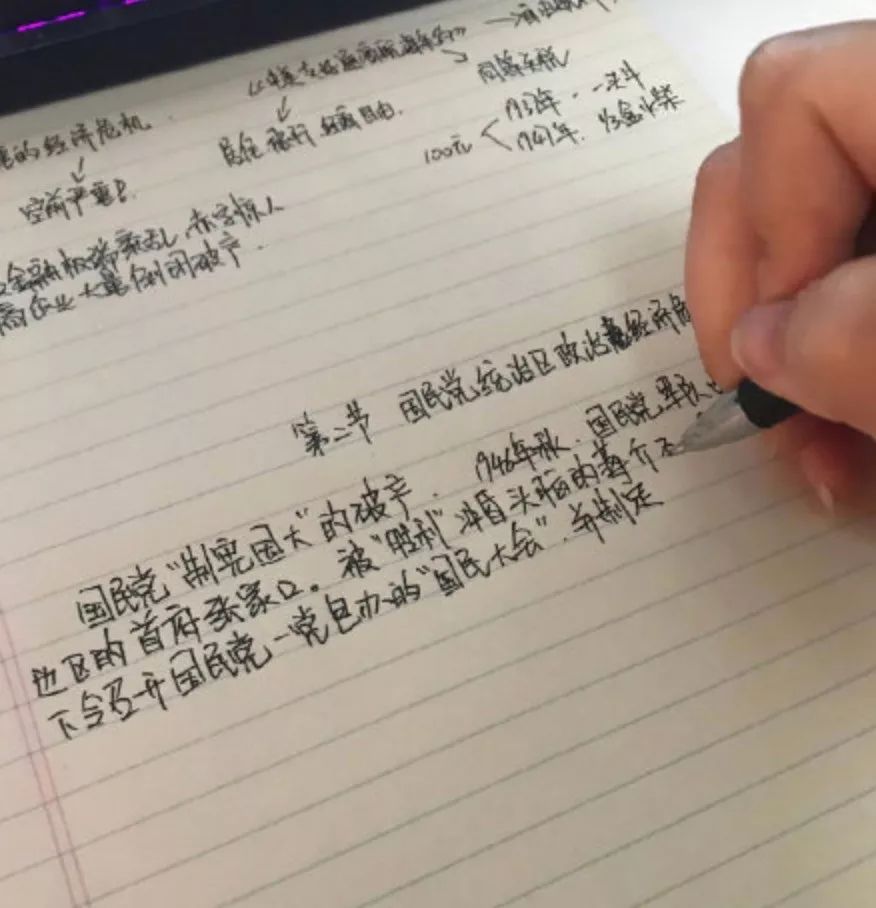 的经济危机
同等关税
空前严重
自由
100元
1937年
1947年
金融极端紊乱,赤字惊人
企业大量倒闭破产.
第二节 国民党统治区政治经济危
国民党“制宪国大”的破产. 1946年秋.国民党军队
边区的首府张家口。被“胜利”冲昏头脑的蒋介石
下令召开国民党一党包办的“国民大会”.并制定